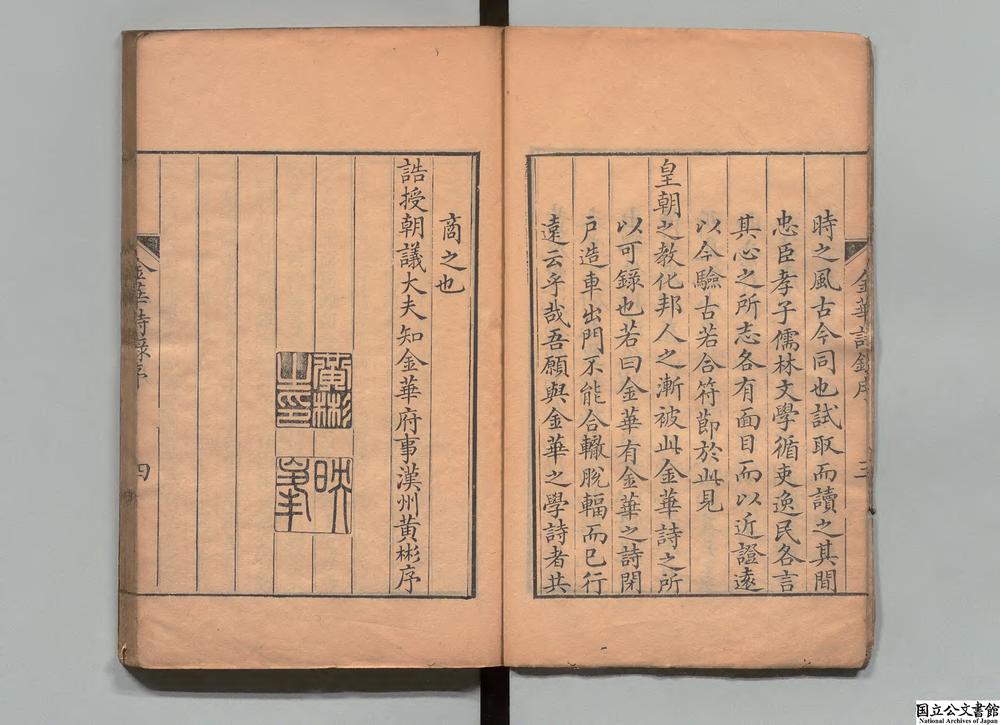 金華詩錄序
三
時之風古今同也試取而讀之其間
忠臣孝子儒林文學循吏逸民各言
其心之所志各有面目而以近證遠
以今驗古若合符節於此見
皇朝之教化邦人之漸被此金華詩之所
以可錄也若曰金華有金華之詩閉
戶造車出門不能合轍脫輻而已行
遠云乎哉吾願與金華之學詩者共
商之也
誥授朝議大夫知金華府事漢州黃彬序
黃彬
之印
映
峯
金華詩錄序
四
国立公文書館
National Archives of Japan